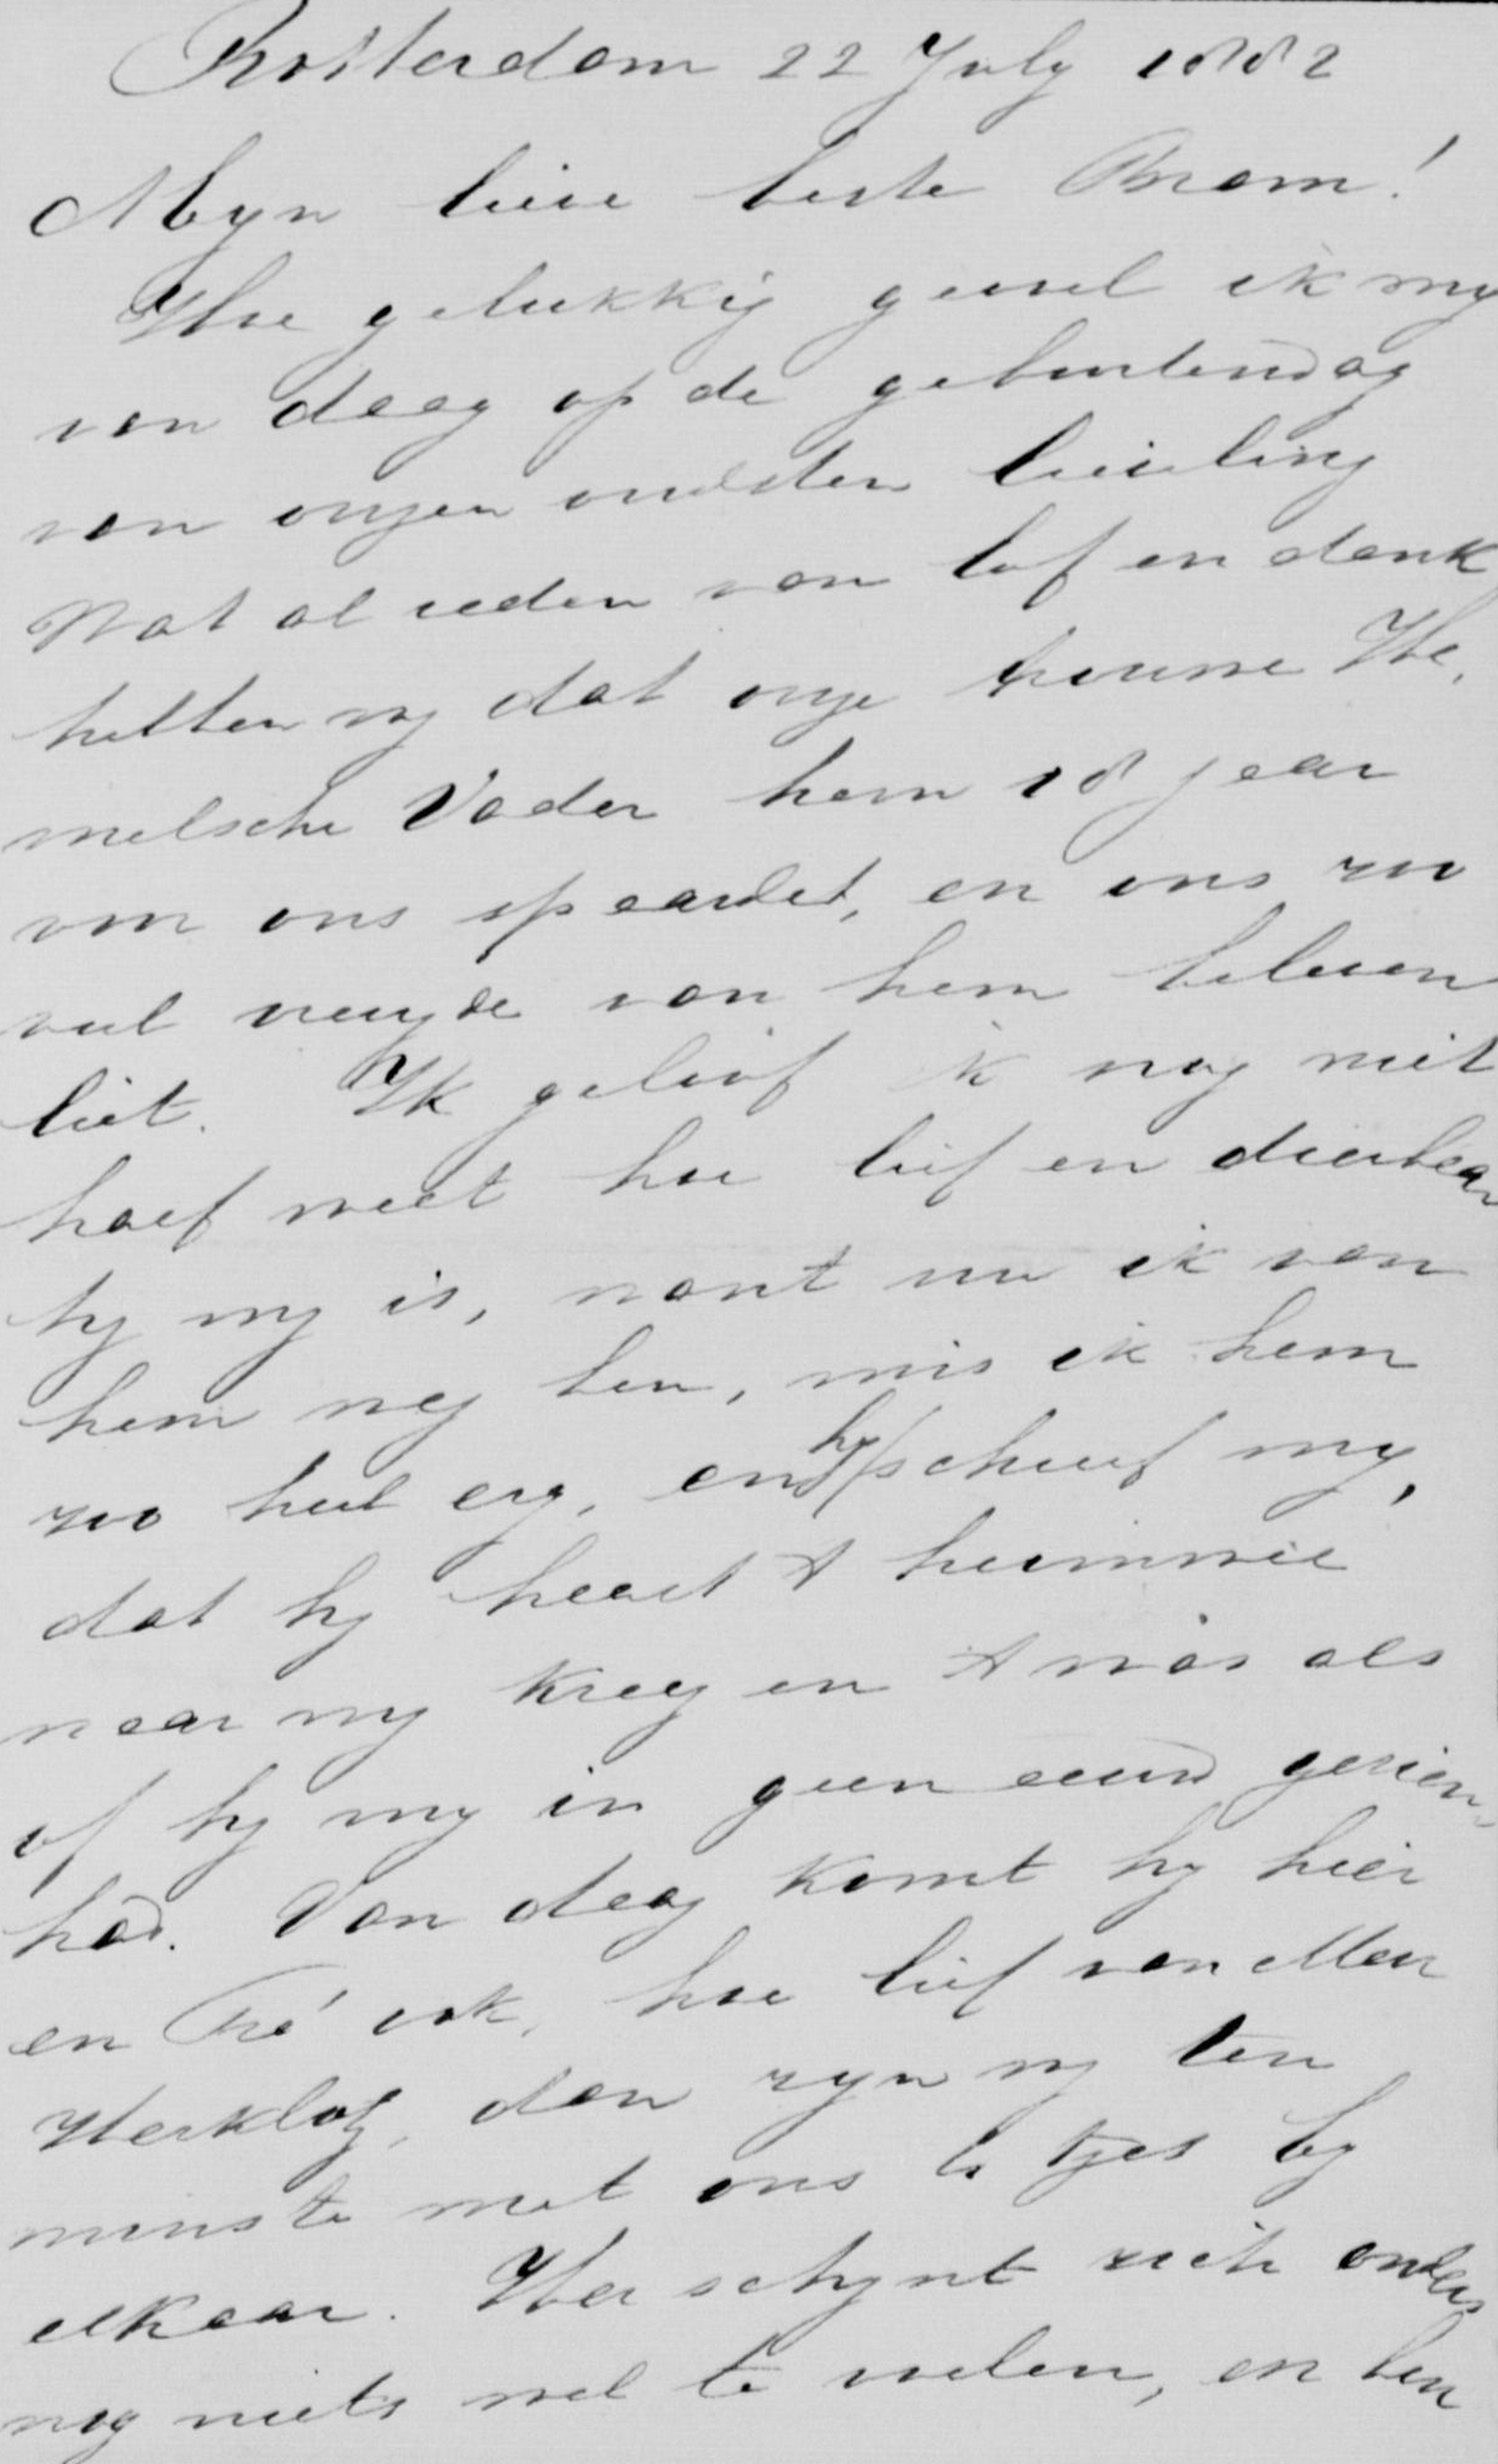 Rotterdam 22 July 1882
Myn lieve beste Bram!
Hoe gelukkig gevoel ik my
van daag op de geboortendag
van onzen oudsten lieveling
Wat al reden van lof en dank
hebben wy dat onze trouwe He,
melsche Vader hem 18 jaar
voor ons spaardet, en ons zoo
veel vreugde van hem beleven
liet. Ik geloof ik nog niet
half weet hoe lief en dierbaar
hy my is, want nu ik van
hem weg ben, mis ik hem
zoo heel erg, en hy schreef my,
dat hy haast 't heimwee
naar my kreeg en 't was als
of hy my in geen eeuw gezien
had. Van daag komt hy hier
en ook, hoe lief van Mevr
Herklotz, dan zyn wy ten
minste met ons by
elkaar. Her schynt zich anders
nog niets wel te voelen, en ben